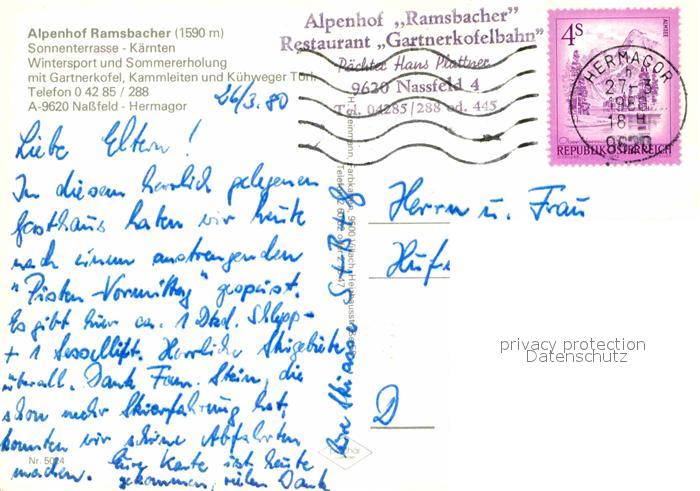 Alpenhof Ramsbacher (1590 m)
Sonnenterrasse - Kärnten
Wintersport und Sommererholung
mit Gartnerkofel, Kammleiten und Kühweger Törl
Telefon 0 42 85 / 288
A-9620 Naßfeld - Hermagor
Alpenhof „Ramsbacher"
Restaurant „Gartnerkofelbahn"
Pächter Hans Plattner
9620 Nassfeld 4
Tel. 04285/288 od. 445
4S
ALMSEE
REPUBLIK ÖSTERREICH
HERMAGOR
27.-3.
1980
18 H
9620
26/3.80
Liebe Eltern!
In diesem herrlich gelegenen
Gasthaus haben wir heute
nach einem anstrengenden
"Pisten-Vormittag" gespeist.
Es gibt hier ca. 1 Dtzd. Schlepp-
+ 1 Sessellift. Herrliche Skigebiete
überall. Dank Fam. Stein, die
schon mehr Skierfahrung hat,
konnten wir schöne Abfahrten
machen. Eure Karte ist heute
gekommen, vielen Dank
Eure Skiasse
Herrn u. Frau
Hufs
D
Nr. 5024
privacy protection
Datenschutz